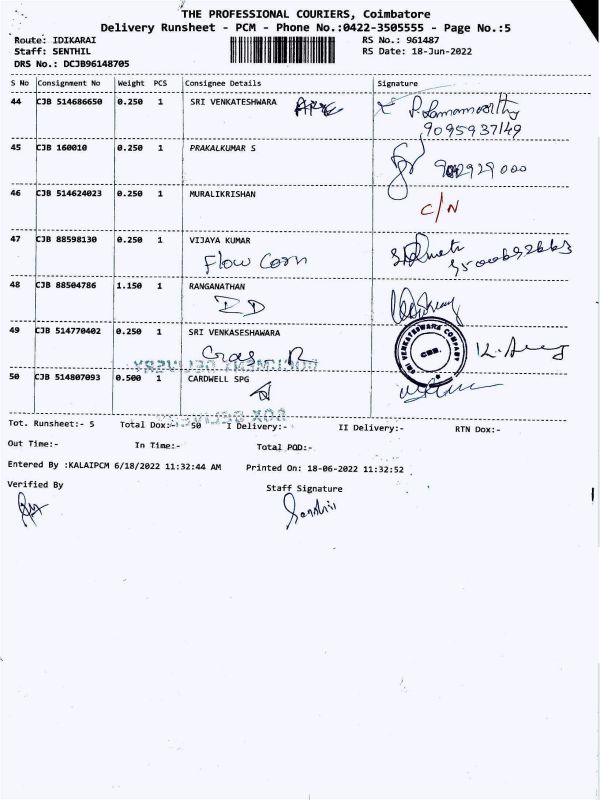 THE PROFESSIONAL COURIERS, Coimbatore
Delivery Runsheet - PCM - Phone No.:0422-3505555 - Page No.:5
Route: IDIKARAI RS No.: 961487
Staff: SENTHIL RS Date: 18-Jun-2022
DRS No.: DCJB96148705
S No Consignment No Weight PCS Consignee Details Signature
44 CJB 514686650 0.250 1 SRI VENKATESHWARA
9095937149
45 CJB 160010 0.250 1 PRAKALKUMAR S
46 CJB 514624023 0.250 1 MURALIKRISHAN
C/N
47 CJB 88598130 0.250 1 VIJAYA KUMAR
Flow Corn
48 CJB 88504786 1.150 1 RANGANATHAN
49 CJB 514770402 0.250 1 SRI VENKASESHAWARA
SRI VENKATESWARA COMPANY
CBE.
DOCUMENT DELIVERY
50 CJB 514807093 0.500 1 CARDWELL SPG
DOX DELIVERY
Tot. Runsheet:- 5 Total Dox:- 50 I Delivery:- II Delivery:- RTN Dox:-
Out Time:- In Time:- Total POD:-
Entered By :KALAIPCM 6/18/2022 11:32:44 AM Printed On: 18-06-2022 11:32:52
Verified By Staff Signature